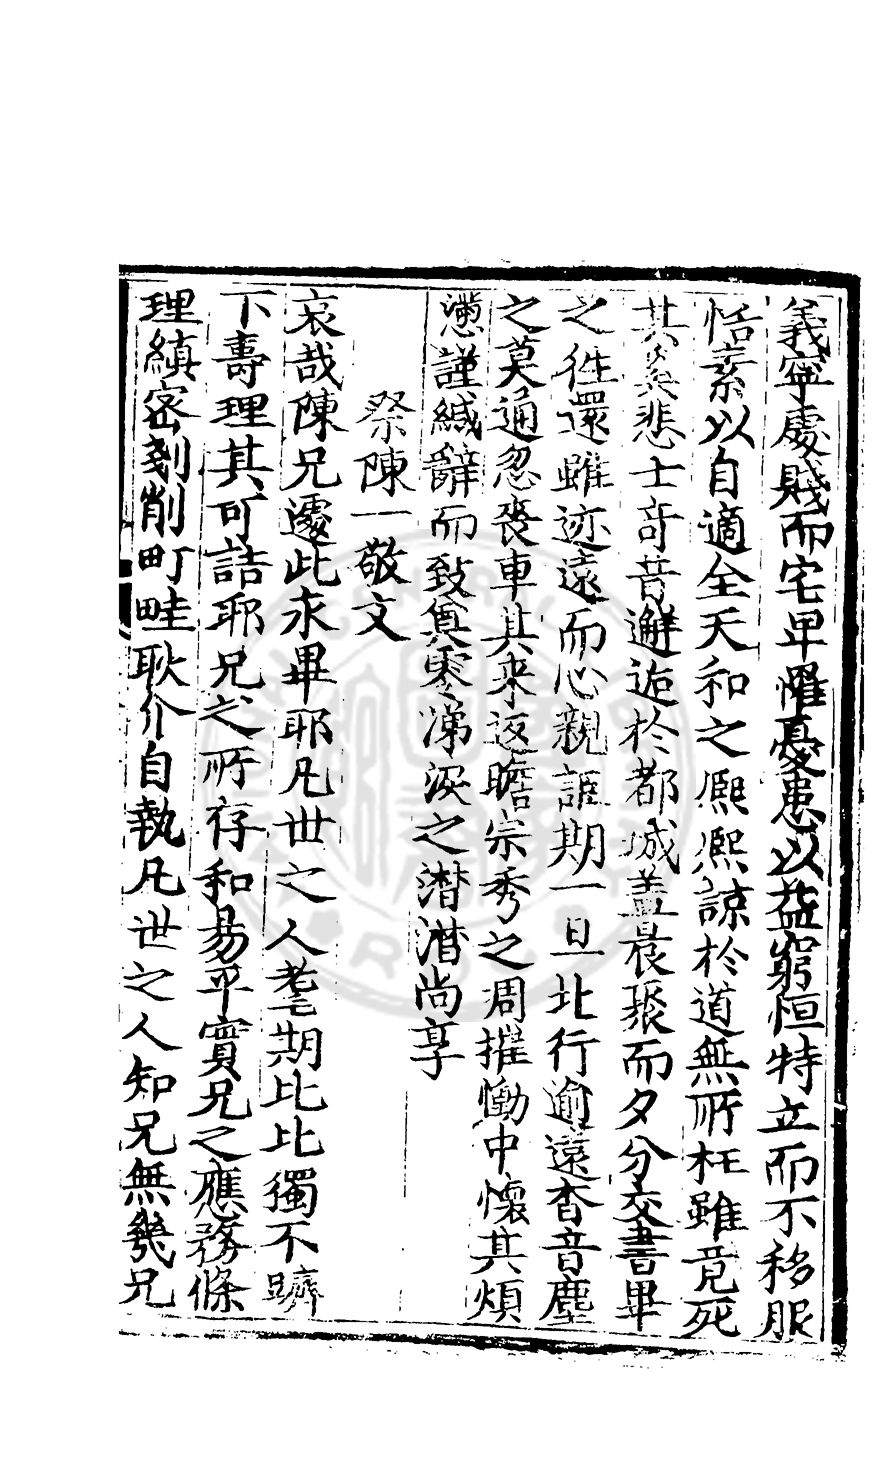 義寧處賤而宅卑罹憂患以益窮恒特立而不移服
恬素以自適全天和之熈熈諒於道無所枉雖竟死
其奚悲士竒昔邂逅於都城盖晨聚而夕分交書畢
之徃還雖迹遠而心親詎期一旦北行逾遠杳音塵
之莫通忽喪車其来返瞻宗秀之凋摧慟中懷其煩
懣謹緘辭而致奠零涕淚之潸潸尚享
祭陳一敬文
哀哉陳兄遽此永畢耶凡世之人耄期比比獨不躋
下壽理其可詰耶兄之所存和易平實兄之應務條
理縝密剗削町畦耿介自執凡世之人知兄無幾兄